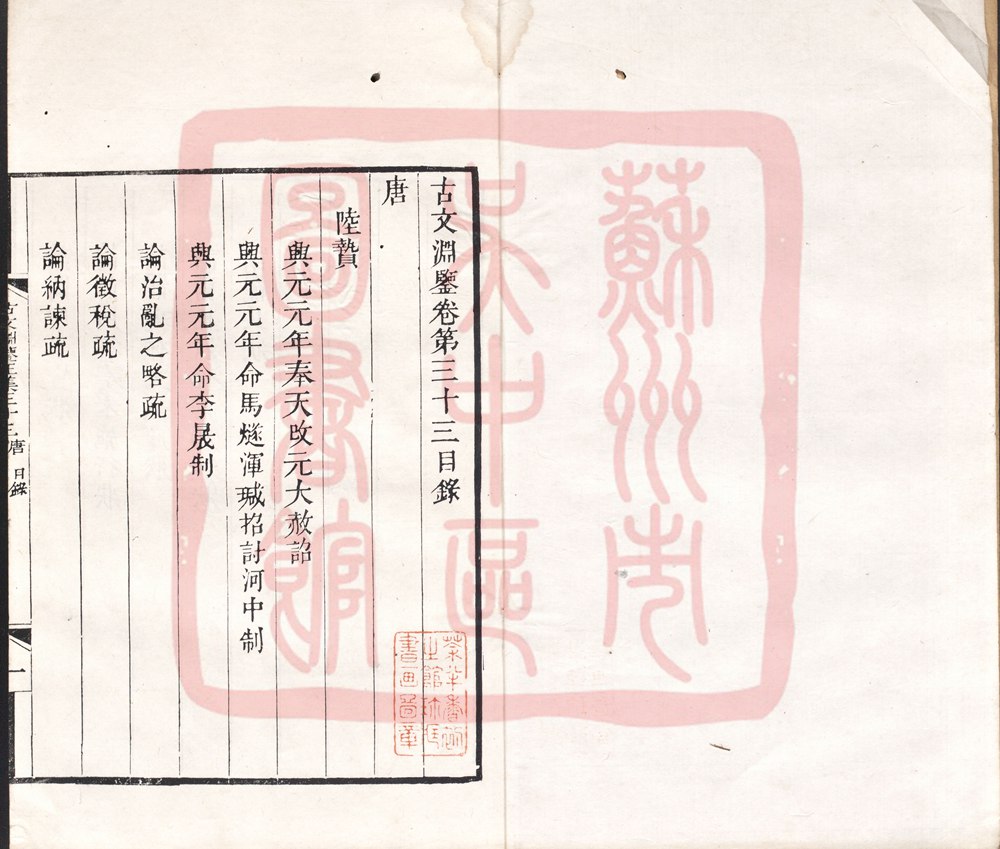 古文淵鑒卷第三十三目錄
唐
陸贄
興元元年奉天改元大赦詔
興元元年命馬燧渾瑊招討河中制
興元元年命李晟制
論治亂之略疏
論徵稅疏
論納諫疏
古文淵鑒正集三十三唐 目錄
一
蘇州市
吳中區
圖書館
書画圖章